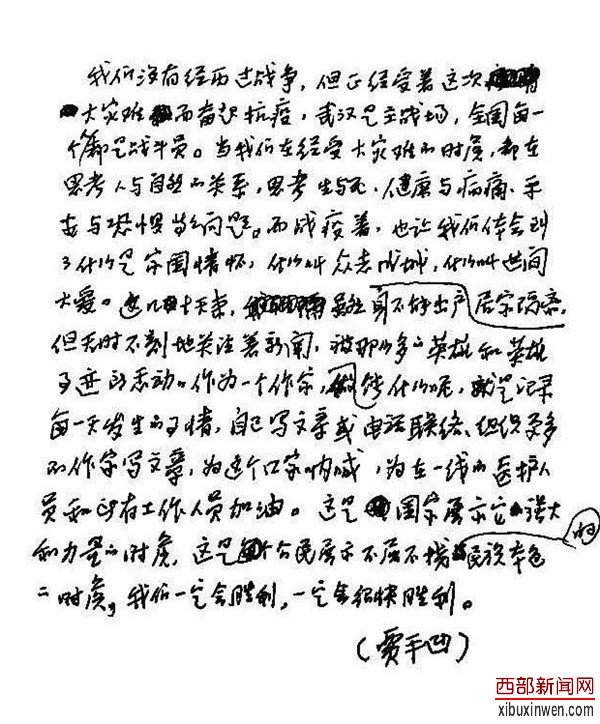 我们没有经历过战争，但正经受着这次
大灾难而奋起抗疫，武汉是主战场，全国每一
个都是战斗员。当我们在经受大灾难的时侯，都在
思考人与自然的关系，思考生与死、健康与病痛、平
安与恐惧等等问题。而战疫着，也让我们体会到
了什么是家国情怀，什么叫众志成城，什么叫世间
大爱。这几十天来，虽然身不能出户居家隔离，
但无时不刻地关注着新闻，被那么多的英雄和英雄
事迹所感动。作为一个作家，能做什么呢，就是记录
每一天发生的事情，自己写文章或电话联络、组织更多
的作家写文章，为这个国家呐喊，为在一线的医护人
员和所有工作人员加油。这是国家展示它的强大
和力量的时侯，这是每个公民展示不屈不挠的民族本色
的时侯，我们一定会胜利，一定会很快胜利。
（贾平凹）
西部新闻网
xibuxinwen.com